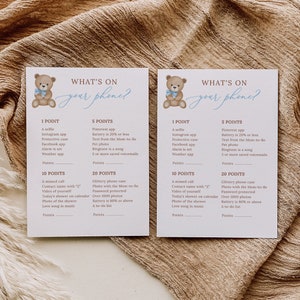 WHAT'S ON
your phone?
1 POINT
A selfie
Instagram app
Pinterest case
Facebook app
Alarm is set
Weather app
Points
5 POINTS
Pinterest app
Battery is 50% or less
Text from the Mom-to-Be
Pet photo
Ringtone is a song
3 or more saved voicemails
Points
10 POINTS
A missed call
Contact name with "Z"
Video of yourself
Today's shower on calendar
Photo of the shower
Love song in music
Points
20 POINTS
Glittery phone case
Photo with the Mom-to-Be
Password protected
Over 2000 photos
Battery is 80% or above
2 mile to run
Points
WHAT'S ON
your phone?
1 POINT
A selfie
Instagram app
Facebook app
Alarm is set
Weather app
Points
5 POINTS
Pinterest app
Text from the Mom-to-Be
Pet photo
Ringtone is a song
Points
10 POINTS
A missed call
Contact name with "Z"
Video of yourself
Today's shower on calendar
Photo of the shower
Love song in music
Points
20 POINTS
Glittery phone case
Photo with the Mom-to-Be
Password protected
Battery is 80% or above
Points